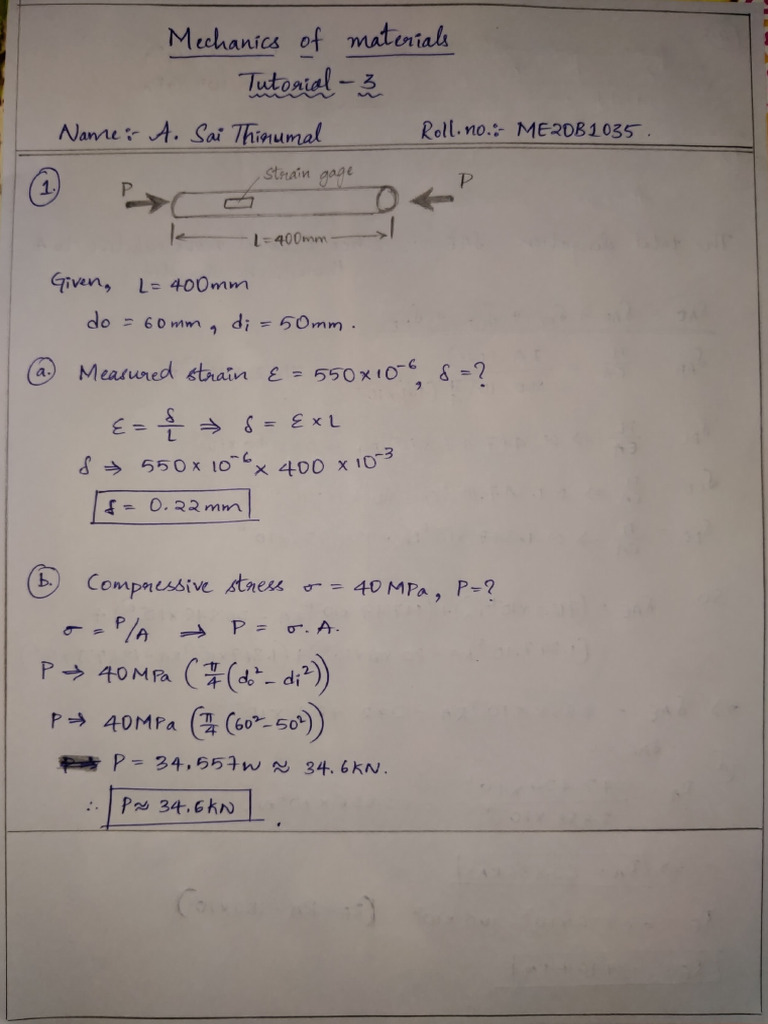 Mechanics of materials
Tutorial - 3
Name:- A. Sai Thirumal Roll.no.:- ME20B1035.
1. P strain gage P
L=400mm
Given, L= 400mm
do = 60mm, di = 50mm.
a. Measured strain ε = 550×10⁻⁶, δ =?
ε = δ/L ⇒ δ = ε×L
δ ⇒ 550×10⁻⁶ × 400 ×10⁻³
δ = 0.22mm
b. Compressive stress σ = 40MPa, P=?
σ = P/A ⇒ P = σ.A.
P ⇒ 40MPa (π/4 (do² - di²))
P ⇒ 40MPa (π/4 (60² - 50²))
P = 34.557N ≈ 34.6KN.
∴ P≈ 34.6KN.